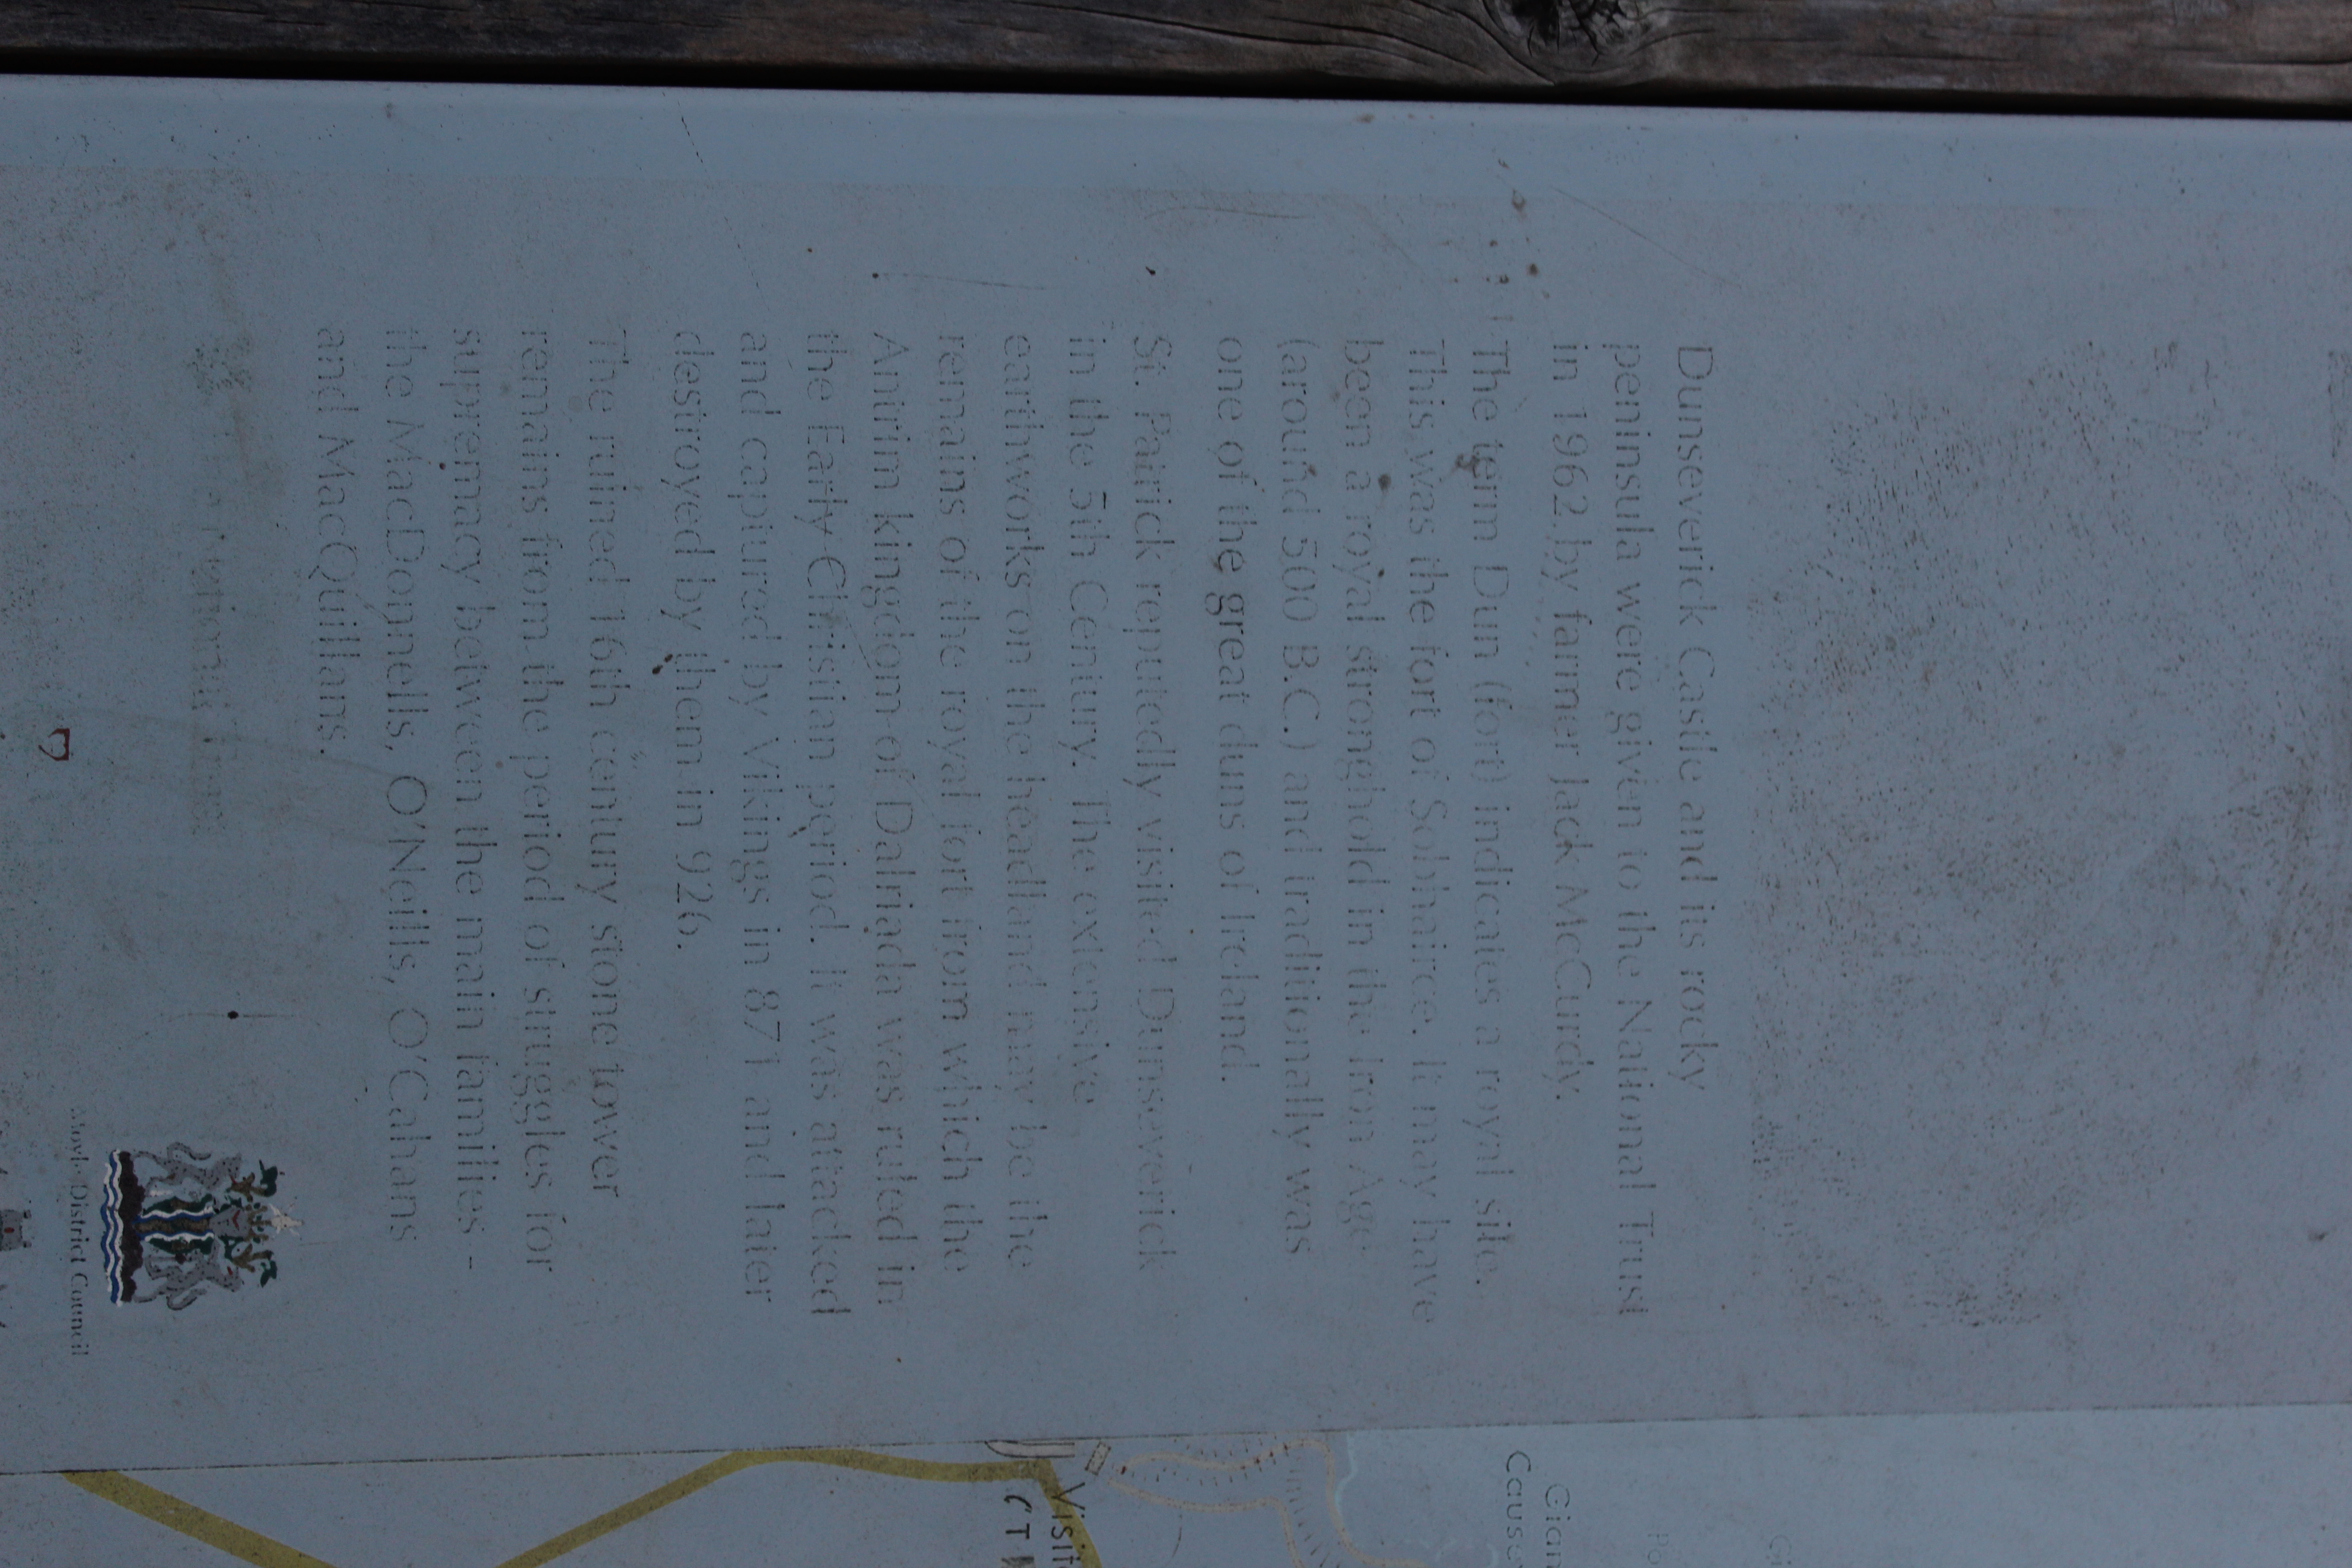 Dunseverick Castle and its rocky
peninsula were given to the National Trust
in 1962 by farmer Jack McCurdy.
The term Dun (fort) indicates a royal site.
This was the fort of Sobhairce. It may have
been a royal stronghold in the Iron Age
(around 500 B.C.) and traditionally was
one of the great duns of Ireland.
St. Patrick reputedly visited Dunseverick
in the 5th Century. The extensive
earthworks on the headland may be the
remains of the royal fort from which the
Antrim kingdom of Dalriada was ruled in
the Early Christian period. It was attacked
and captured by Vikings in 871 and later
destroyed by them in 926.
The ruined 16th century stone tower
remains from the period of struggles for
supremacy between the main families -
the MacDonnells, O'Neills, O'Cahans
and MacQuillans.
National Trust
Moyle District Council
Gian
Cause
Visit